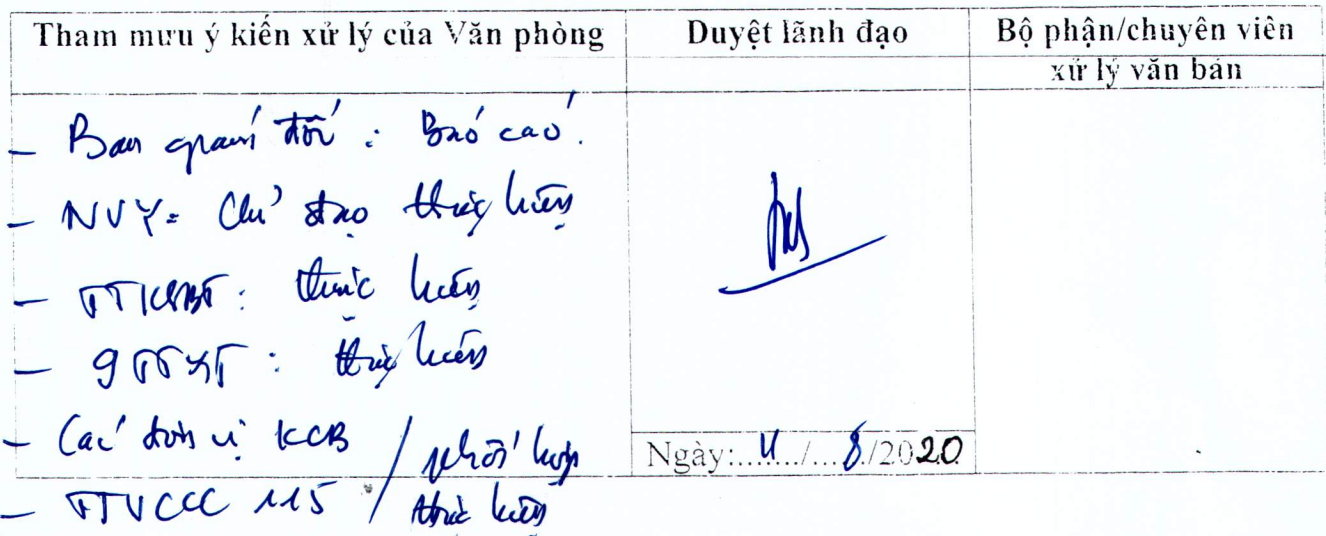 Tham mưu ý kiến xử lý của Văn phòng
Duyệt lãnh đạo
Bộ phận/chuyên viên
xử lý văn bản
- Ban giám đốc: Báo cáo.
- NVY: Chỉ đạo thực hiện
- TTKSBT: thực hiện
- 9 TTYT: thực hiện
- Các đơn vị KCB / phối hợp
- TTVCCC 115 / thực hiện
Ngày:...4.../...8./2020